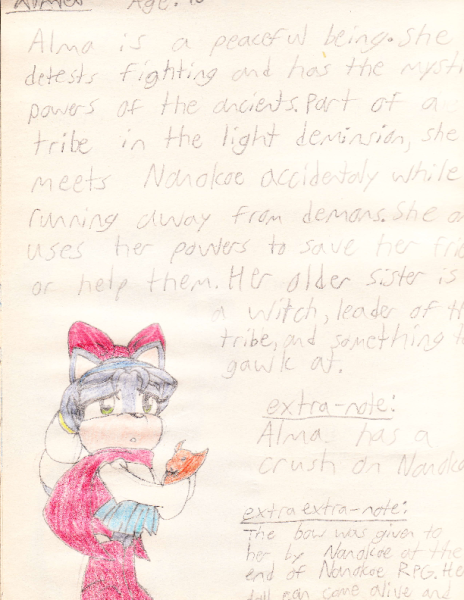 Age: 10
Alma is a peaceful being. She
detests fighting and has the mysti
powers of the ancients. Part of a
tribe in the light deminsion, she
meets Nanokoe accidentaly while
running away from demons. She o
uses her powers to save her frie
or help them. Her older sister is
a witch, leader of th
tribe, and something to
gawk at.
extra-note:
Alma has a
crush on Nanoko
extra extra-note:
The bow was given to
her by Nanokoe at the
end of Nanokoe RPG. He
doll can come alive and